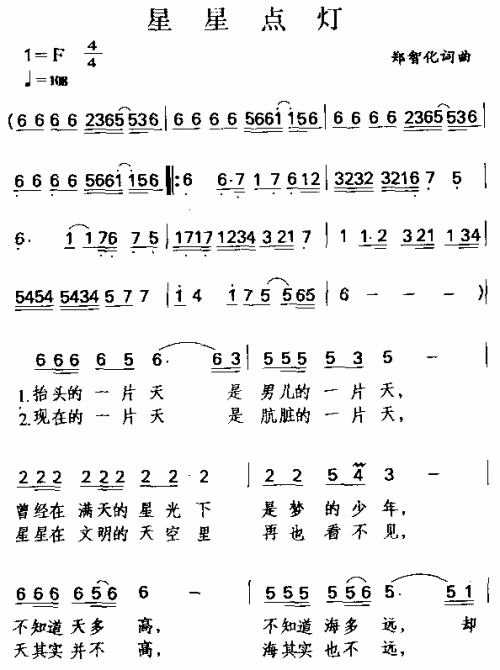 星星点灯
1=F 4/4
♩=108
郑智化词曲
(6 6 6 6 2365 536 | 6 6 6 6 5661 156 | 6 6 6 6 2365 536 |
6 6 6 6 5661 156 |: 6 6·7 17 612 | 3232 3216 7 5 |
6· 1 176 75 | 1717 1234 3217 | 1 1·2 321 134 |
5454 5434 5 7 7 | 1 4 175 565 | 6 - - - )|
666 6 5 6· 63 | 555 5 3 5 - |
1.抬头的一片天 是男儿的一片天,
2.现在的一片天 是肮脏的一片天,
222 222 2 2·2 | 2 2 5 4 3 - |
曾经在满天的星光下 是梦的少年,
星星在文明的天空里 再也看不见,
666 656 6 - | 555 556 5· 51 |
不知道天多高, 不知道海多远, 却
天其实并不高, 海其实也不远,